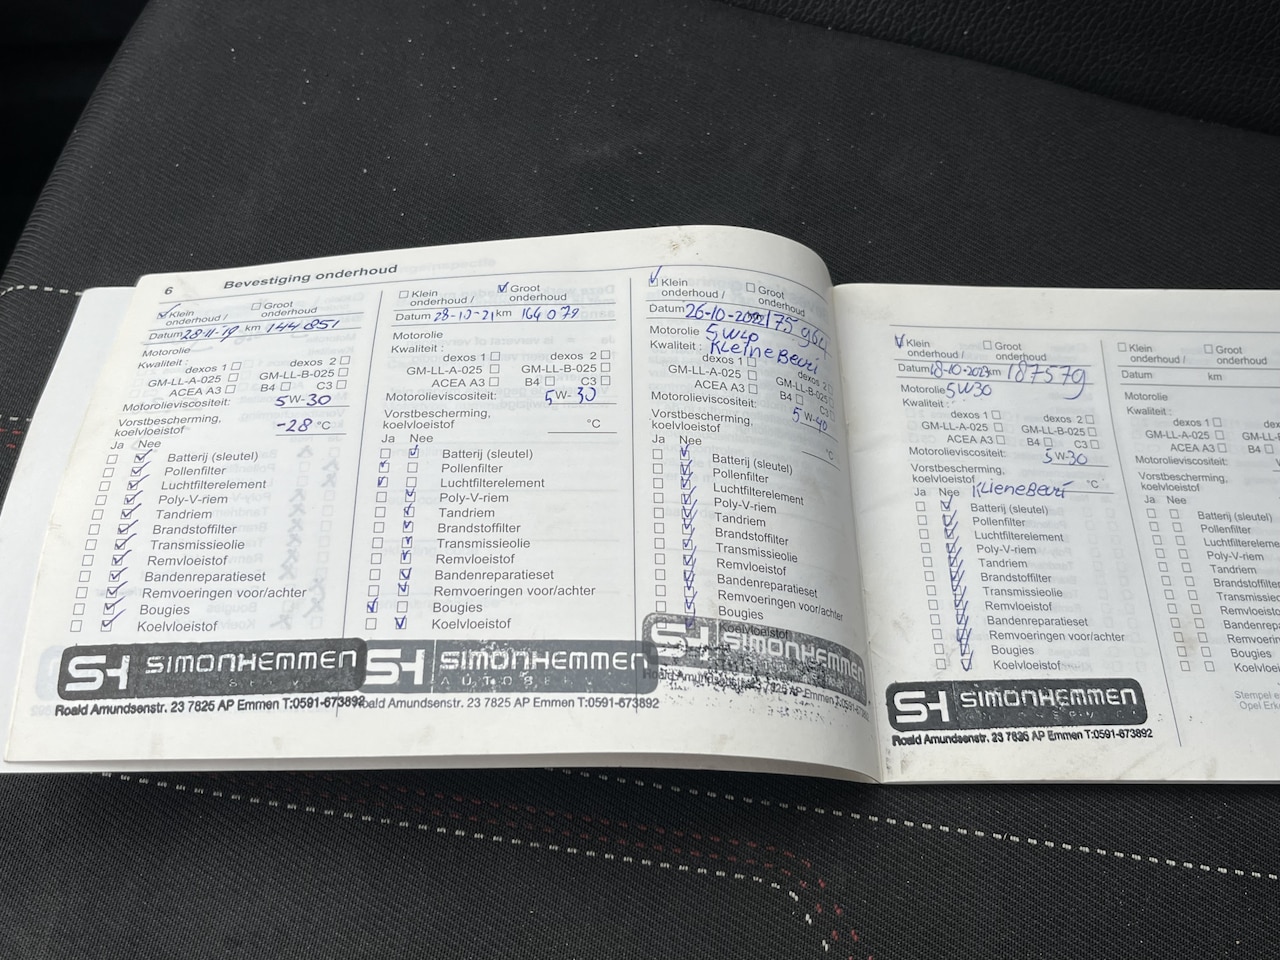 6 Bevestiging onderhoud
Klein onderhoud / Groot onderhoud
Datum 28-11-19 km 144 851
Motorolie
Kwaliteit :
dexos 1 dexos 2
GM-LL-A-025 GM-LL-B-025
ACEA A3 B4 C3
Motorolieviscositeit: 5W-30
Vorstbescherming,
koelvloeistof -28 °C
Ja Nee
Batterij (sleutel)
Pollenfilter
Luchtfilterelement
Poly-V-riem
Tandriem
Brandstoffilter
Transmissieolie
Remvloeistof
Bandenreparatieset
Remvoeringen voor/achter
Bougies
Koelvloeistof
SH SIMONHEMMEN
Roald Amundsenstr. 23 7825 AP Emmen T:0591-673892
Klein onderhoud / Groot onderhoud
Datum 28-10-21 km 164 079
Motorolie
Kwaliteit :
dexos 1 dexos 2
GM-LL-A-025 GM-LL-B-025
ACEA A3 B4 C3
Motorolieviscositeit: 5W-30
Vorstbescherming,
koelvloeistof °C
Ja Nee
Batterij (sleutel)
Pollenfilter
Luchtfilterelement
Poly-V-riem
Tandriem
Brandstoffilter
Transmissieolie
Remvloeistof
Bandenreparatieset
Remvoeringen voor/achter
Bougies
Koelvloeistof
SH SIMONHEMMEN
Roald Amundsenstr. 23 7825 AP Emmen T:0591-673892
Klein onderhoud / Groot onderhoud
Datum 26-10-2022
Motorolie
Kwaliteit : Kleine Beurt
dexos 1 dexos 2
GM-LL-A-025 GM-LL-B-025
ACEA A3 B4 C3
Motorolieviscositeit: 5W-40
Vorstbescherming,
koelvloeistof °C
Ja Nee
Batterij (sleutel)
Pollenfilter
Luchtfilterelement
Poly-V-riem
Tandriem
Brandstoffilter
Transmissieolie
Remvloeistof
Bandenreparatieset
Remvoeringen voor/achter
Bougies
Koelvloeistof
SH SIMONHEMMEN
Klein onderhoud / Groot onderhoud
Datum 18-10-2023 km 187579
Motorolie 5W30
Kwaliteit :
dexos 1 dexos 2
GM-LL-A-025 GM-LL-B-025
ACEA A3 B4 C3
Motorolieviscositeit: 5W-30
Vorstbescherming,
koelvloeistof °C
Ja Nee Kleine Beurt
Batterij (sleutel)
Pollenfilter
Luchtfilterelement
Poly-V-riem
Tandriem
Brandstoffilter
Transmissieolie
Remvloeistof
Bandenreparatieset
Remvoeringen voor/achter
Bougies
Koelvloeistof
SH SIMONHEMMEN
Roald Amundsenstr. 23 7825 AP Emmen T:0591-673892
Klein onderhoud / Groot onderhoud
Datum km
Motorolie
Kwaliteit :
dexos 1
GM-LL-A-025 GM-LL
ACEA A3 B4
Motorolieviscositeit:
Vorstbescherming,
koelvloeistof
Ja Nee
Batterij (sleutel)
Pollenfilter
Luchtfiltereleme
Poly-V-riem
Tandriem
Brandstoffilter
Transmissie
Remvloeisto
Bandenrepa
Remvoerin
Bougies
Koelvloei
Stempel e
Opel Erke